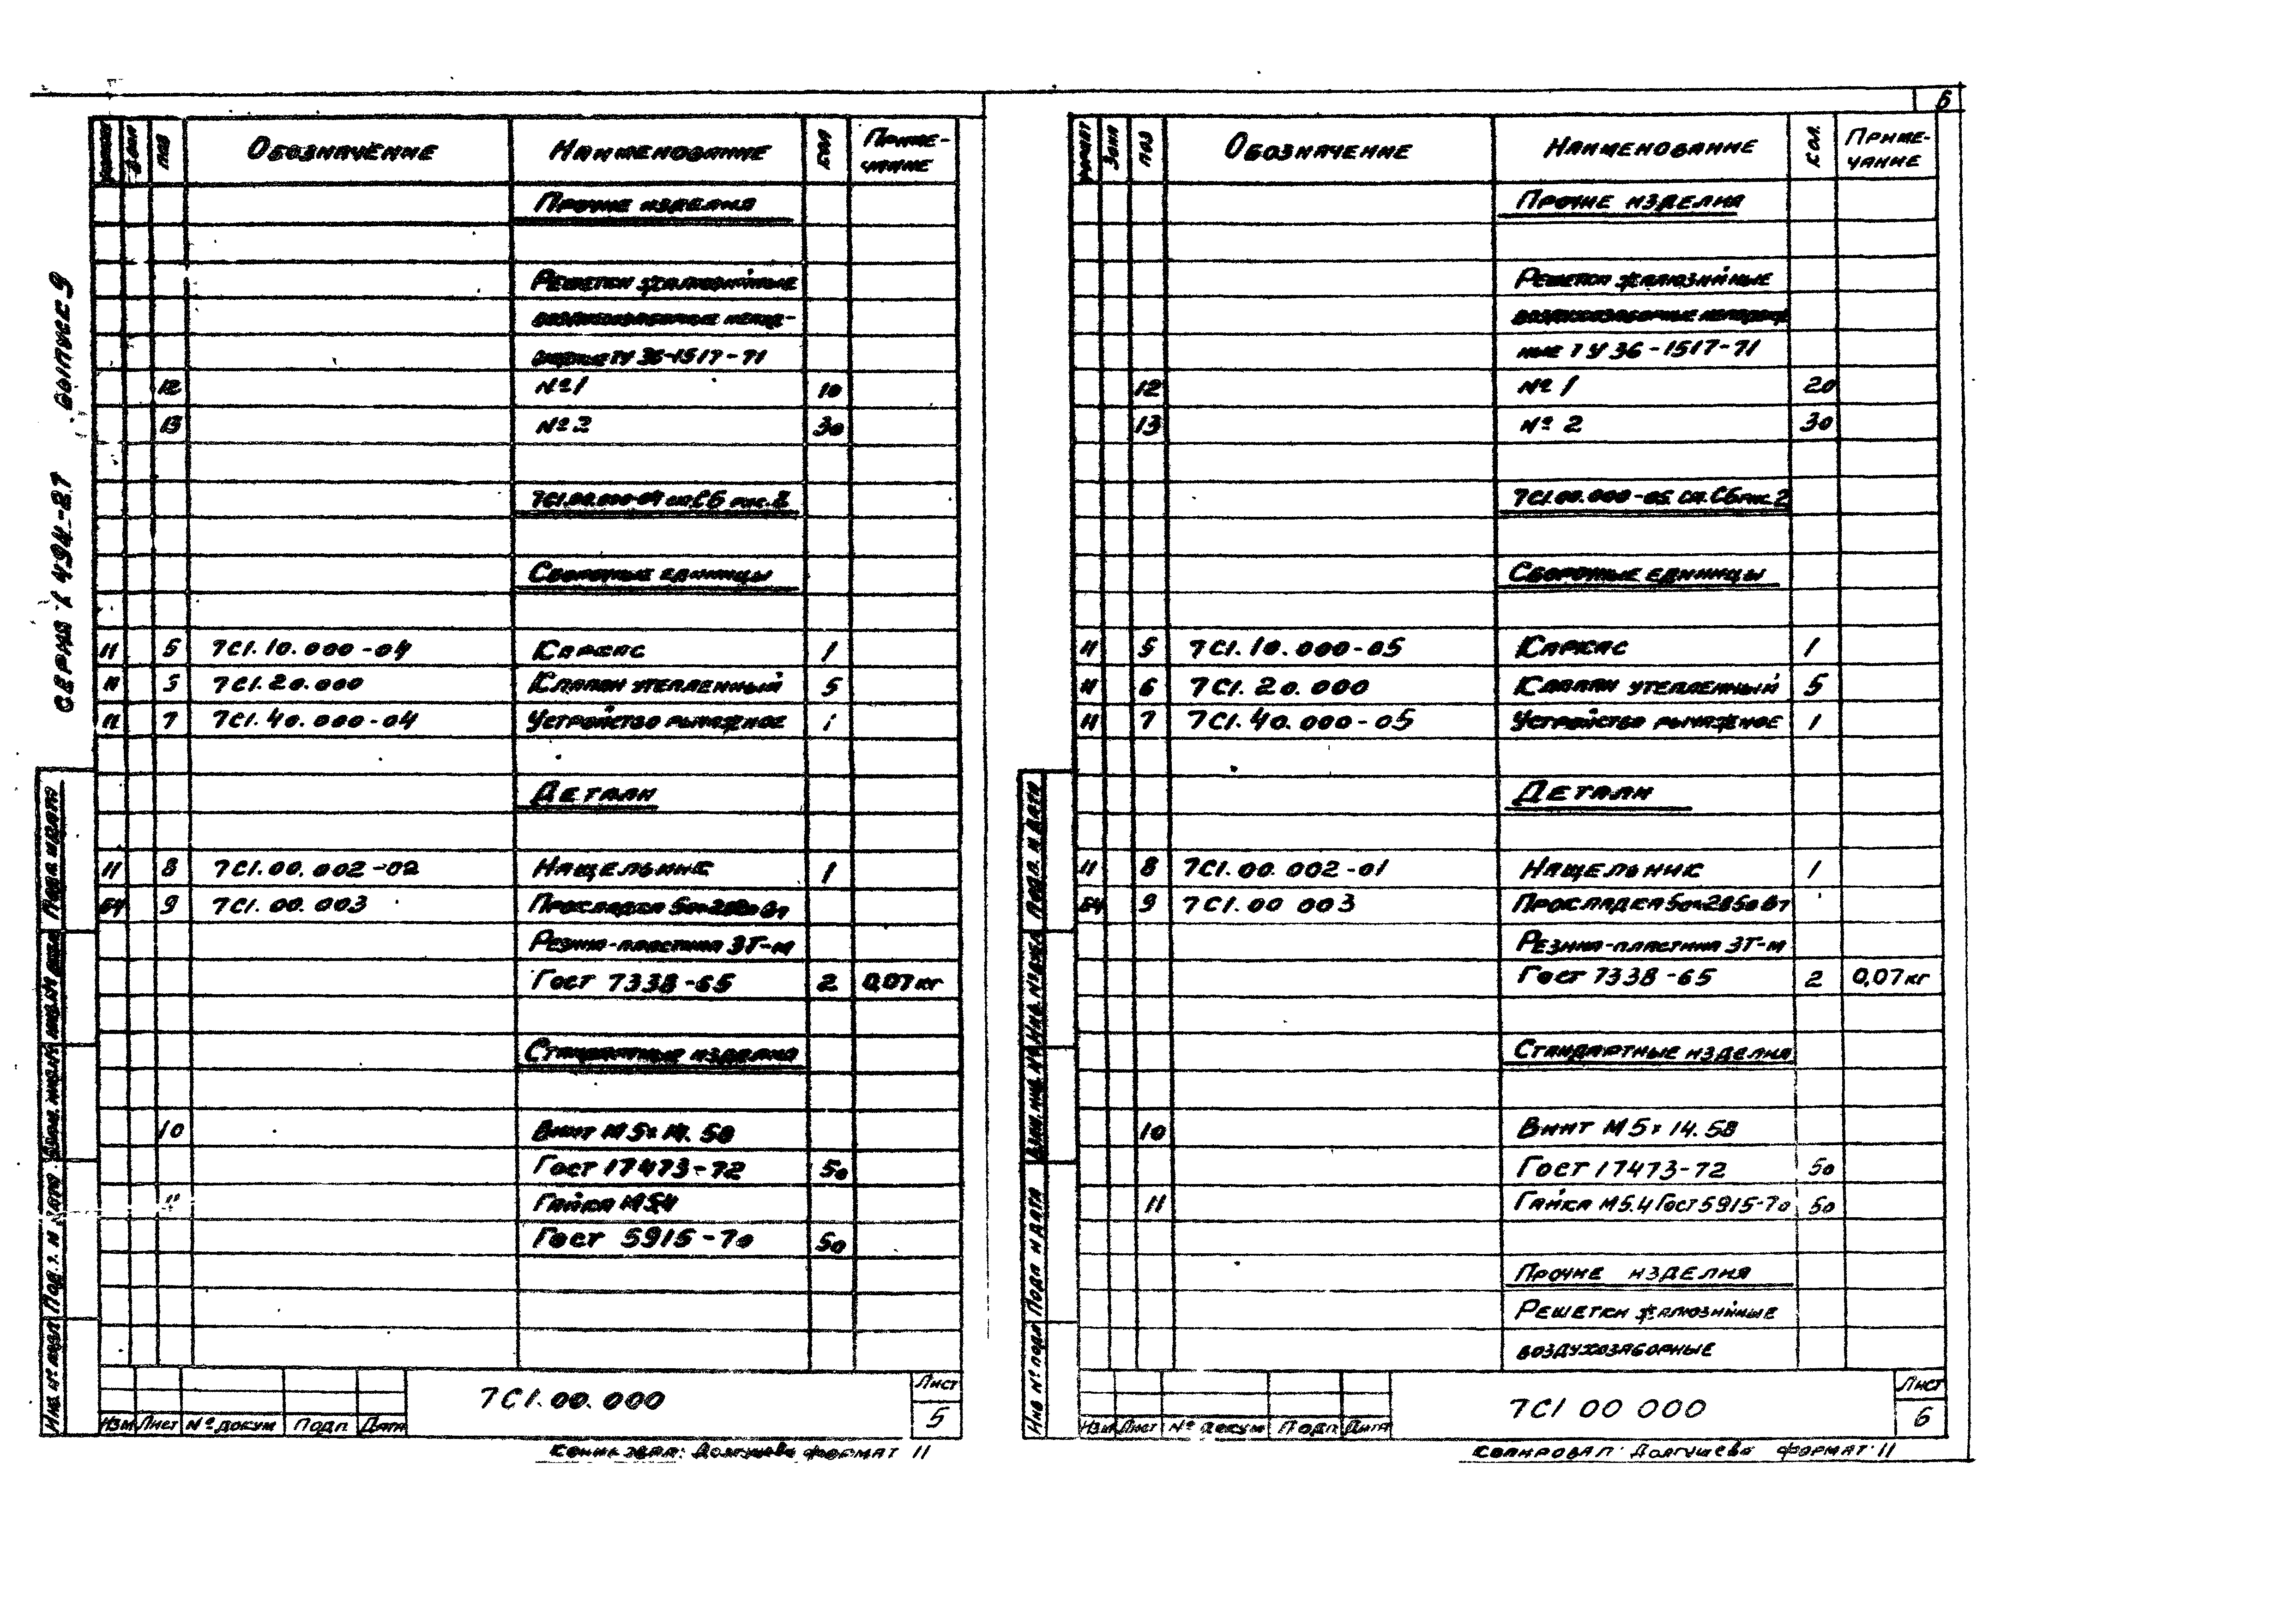 6
СЕРИЯ 1.494-27 ВЫПУСК 9
ФОРМАТ ЗОНА ПОЗ ОБОЗНАЧЕНИЕ НАИМЕНОВАНИЕ КОЛ ПРИМЕ-
ЧАНИЕ
ПРОЧИЕ ИЗДЕЛИЯ
РЕШЕТКИ ЖАЛЮЗИЙНЫЕ
ВОЗДУХОЗАБОРНЫЕ
ТУ 36-1517-71
12 №1 10
13 №2 30
7С1.00.000-04 СБ рис.2
СБОРОЧНЫЕ ЕДИНИЦЫ
11 5 7С1.10.000-04 КАРКАС 1
11 5 7С1.20.000 КЛАПАН УТЕПЛЕННЫЙ 5
11 7 7С1.40.000-04 УСТРОЙСТВО РЫЧАЖНОЕ 1
ДЕТАЛИ
11 8 7С1.00.002-02 НАЩЕЛЬНИК 1
БЧ 9 7С1.00.003 ПРОКЛАДКА
РЕЗИНА-ПЛАСТИНА 3Т-М
ГОСТ 7338-65 2 0,07 кг
СТАНДАРТНЫЕ ИЗДЕЛИЯ
10 ВИНТ М5х14.58
ГОСТ 17473-72 50
11 ГАЙКА М5.4
ГОСТ 5915-70 50
ИЗМ ЛИСТ № ДОКУМ ПОДП ДАТА
7С1.00.000
ЛИСТ
5
ИНВ. № ПОДЛ ПОДП. И ДАТА ВЗАМ. ИНВ. № ИНВ. № ДУБЛ ПОДП. И ДАТА
КОПИРОВАЛ: Долгушева ФОРМАТ 11
ФОРМАТ ЗОНА ПОЗ ОБОЗНАЧЕНИЕ НАИМЕНОВАНИЕ КОЛ. ПРИМЕ-
ЧАНИЕ
ПРОЧИЕ ИЗДЕЛИЯ
РЕШЕТКИ ЖАЛЮЗИЙНЫЕ
ВОЗДУХОЗАБОРНЫЕ
НЫЕ ТУ 36-1517-71
12 №1 20
13 №2 30
7С1.00.000-05 СМ. СБ рис 2
СБОРОЧНЫЕ ЕДИНИЦЫ
11 5 7С1.10.000-05 КАРКАС 1
11 6 7С1.20.000 КЛАПАН УТЕПЛЕННЫЙ 5
11 7 7С1.40.000-05 УСТРОЙСТВО РЫЧАЖНОЕ 1
ДЕТАЛИ
11 8 7С1.00.002-01 НАЩЕЛЬНИК 1
БЧ 9 7С1.00 003 ПРОКЛАДКА 50х2850 Вт
РЕЗИНА-ПЛАСТИНА 3Т-М
ГОСТ 7338-65 2 0,07 кг
СТАНДАРТНЫЕ ИЗДЕЛИЯ
10 ВИНТ М5х14.58
ГОСТ 17473-72 50
11 ГАЙКА М5.4 ГОСТ 5915-70 50
ПРОЧИЕ ИЗДЕЛИЯ
РЕШЕТКИ ЖАЛЮЗИЙНЫЕ
ВОЗДУХОЗАБОРНЫЕ
ИЗМ ЛИСТ № ДОКУМ ПОДП ДАТА
7С1 00 000
ЛИСТ
6
ИНВ № ПОДЛ ПОДП И ДАТА ВЗАМ. ИНВ. № ИНВ. № ДУБЛ ПОДП. И ДАТА
КОПИРОВАЛ: Долгушева ФОРМАТ 11